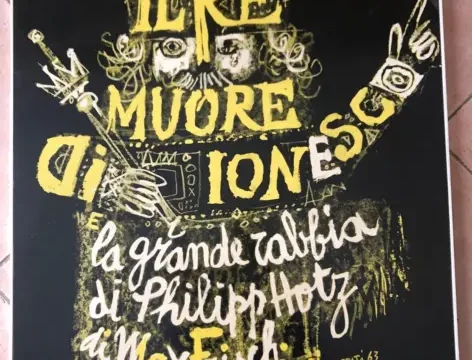 IL RE
MUORE
Di IONESCO
E
la grande rabbia
di Philipp Hotz
di Max Frisch